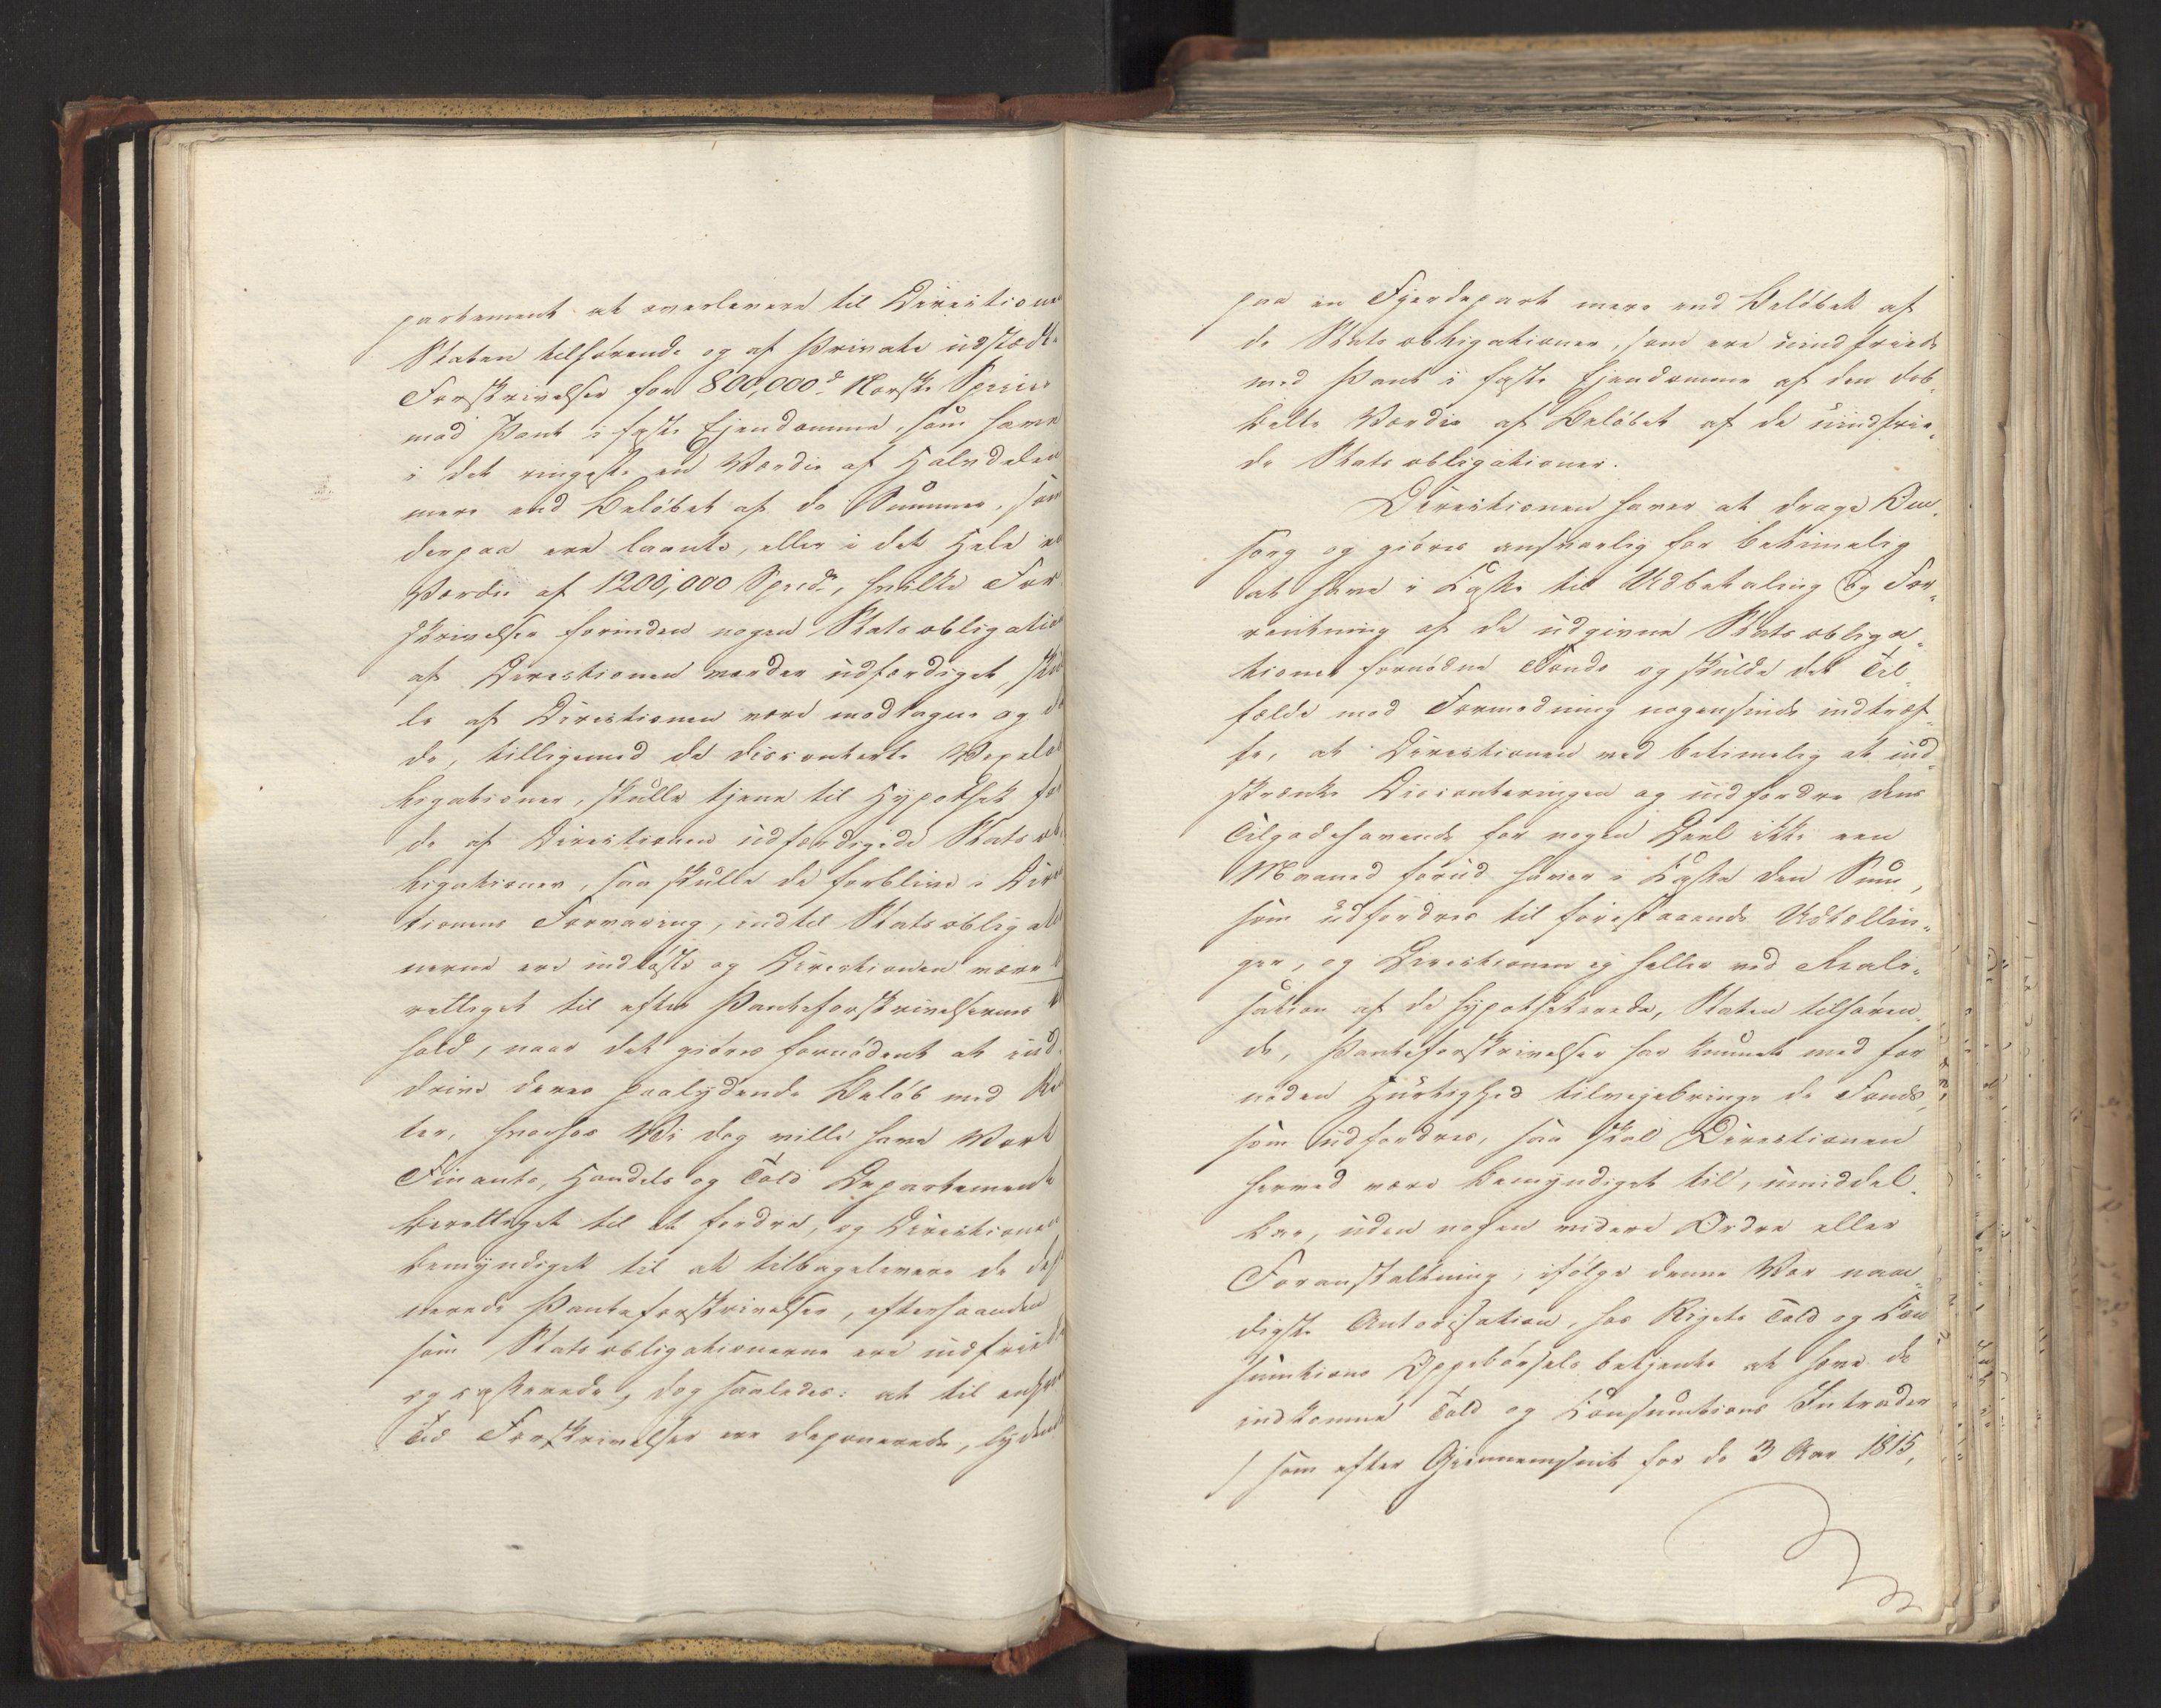 partement at overlevere til Directionen
Staten tilhörende og af Private udstædte
Forskrivelser for 800,000 d Norske Species
mod Pant i faste Ejendomme, som have
i det ringeste en Værdie af Halvdelen
mere end Belöbet af de Summer, som
derpaa ere laante, eller i det Hele en
Værdie af 1200,000 Spd., hvilke For
skrivelser forinden nogen Statsobligation
af Directionen vorder udfærdiget, skul
le af Directionen være modtagne og da
de, tilligemed de disconterte Vexelob
ligationer, skulle tjene til Hypothek for
de af Directionen udfærdigede Statsob
ligationer, saa skulle de forblive i Direc
tionens Forvaring, indtil Statsobligatio
nerne ere indlöste og Directionen være be
rettiget til efter Panteforskrivelsernes
hold, naar det gjöres fornödent at ind
drive deres paalydende Belöb med Ren
ter, hvorhos Vi dog ville have Vort
Finants, Handels og Told Departement
berettiget til at fordre, og Directionen
bemyndiget til at tilbagelevere de depo
nerede Panteforskrivelser, efterhaanden
som Statsobligationerne ere indfriede
og casserede, dog saaledes: at til enhver
Tid Forskrivelser ere deponerede, lydende
paa en Fjerdepart mere end Belöbet af
de Statsobligationer, som ere uindfriede
med Pant i faste Ejendomme af den dob-
belte Værdie af Belöbet af de uindfrie-
de Statsobligationer.
Directionen haver at drage Om-
sorg og gjöres ansvarlig for betimelig
at have i Casse til Udbetaling og For-
rentning af de udgivne Statsobliga-
tioner fornödne Fonds og skulde det Til-
fælde mod Formodning nogensinde indtræf-
fe, at Directionen ved betimelig at ind-
skrænke Disconteringen og indfordre dens
Tilgodehavende for nogen Deel ikke een
Maaned forud haver i Casse den Sum,
som udfordres til forestaaende Udtællin-
ger, og Directionen ej heller ved Reali-
sation af de hypothekerede, Staten tilhören-
de, Panteforskrivelser har kunnet med for
nöden Hurtighed tilvejebringe de Fonds,
som udfordres, saa skal Directionen
herved være bemyndiget til, umiddel-
bar, uden nogen videre Ordre eller
Foranstaltning, ifölge denne Vor naa-
digste Autorisation, hos Rigets Told og Con
sumtions Oppebörselsbetjente at hæve de
indkomne Told og Consumtions Intrader
/ som efter Gjennemsnit for de 3 Aar 1815,